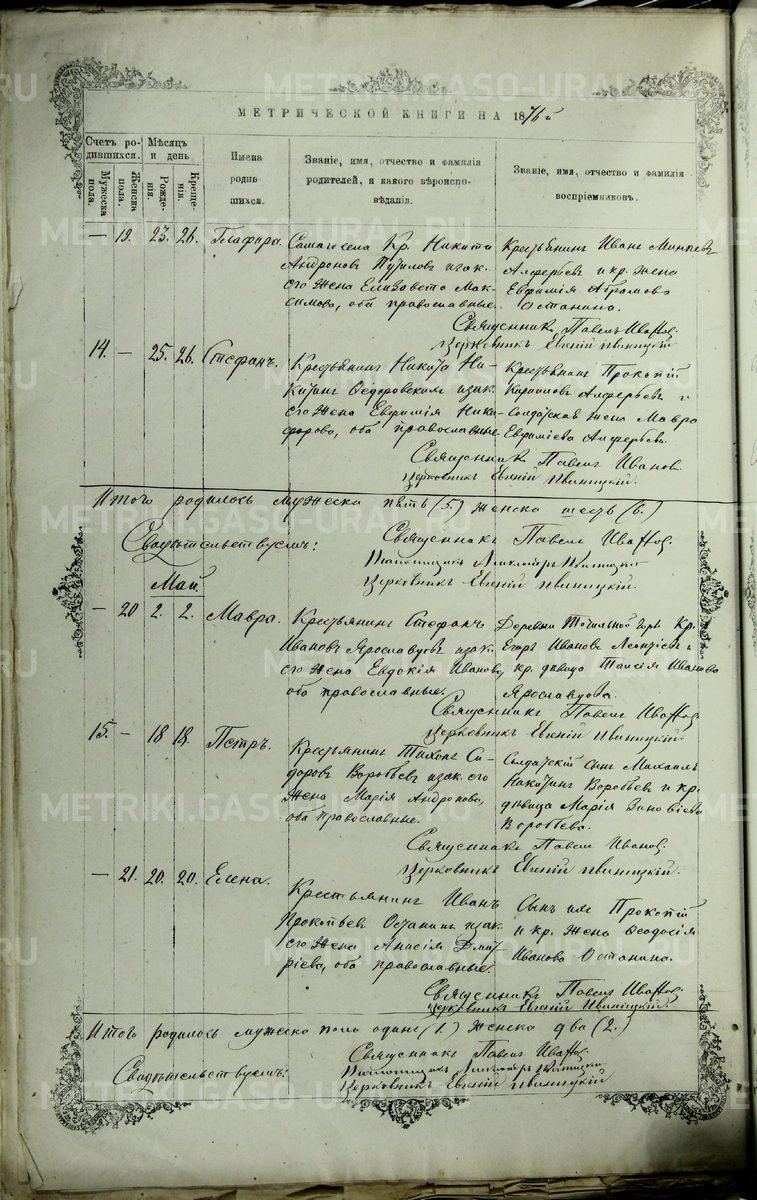 METRIKI.GASO-URAL.RU
МЕТРИЧЕСКОЙ КНИГИ НА 1876й
Счетъ ро-
дившихся.
Мѣсяцъ
и день
Имена
родив
шихся.
Званіе, имя, отчество и фамилія
родителей, и какого вѣроиспо-
вѣданія.
Званіе, имя, отчество и фамилія
воспріемниковъ.
Мужеска
пола.
Женска
пола.
Рожде-
нія.
Креще-
нія.
— 19. 23. 26. Глафира.
Самаго села Кр. Никита
Андроновъ Путиловъ и зак.
его жена Елизавета Мак-
симова, оба православные.
Крестьянинъ Иванъ
Алферьевъ и кр. жена
Евфимія Абрамова
Останина.
Священникъ Павелъ Ивановъ.
Церковникъ Евгеній Ивиницкій
14. — 25. 26. Стефанъ.
Крестьянинъ Никита Ни-
китинъ Ѳедоровскихъ и зак.
его жена Евфимія Ники-
форова, оба православные.
Крестьянинъ Прокопій
Кариловъ Алферьевъ и
Солдатская жена Мавра
Евфиміева Алферьева.
Священникъ Павелъ Ивановъ.
Церковникъ Евгеній Ивиницкій.
Итого родилось мужеска пять (5.) женска шесть (6.)
Свидѣтельствуемъ:
Священникъ Павелъ Ивановъ.
Церковникъ Евгеній Ивиницкій.
Май.
— 20 2. 2. Мавра.
Крестьянинъ Стефанъ
Ивановъ Ярославцовъ и зак.
его жена Евдокія Иванова,
оба православные.
Деревни Точильной горы Кр.
Егоръ Ивановъ и
кр. дѣвица Таисія Иванова
Ярославцова.
Священникъ Павелъ Ивановъ.
Церковникъ Евгеній Ивиницкій
15. — 18 18. Петръ.
Крестьянинъ Тихонъ Си-
доровъ Воробьевъ и зак. его
жена Марія Андронова,
оба православные.
Солдатскій сынъ Михаилъ
Никитинъ Воробьевъ и кр.
дѣвица Марія Зиновіева
Воробьева.
Священникъ Павелъ Ивановъ.
Церковникъ Евгеній Ивиницкій.
— 21. 20. 20. Елена.
Крестьянинъ Иванъ
Прокопьевъ Останинъ и зак.
его жена Анисія Дмит
ріева, оба православные.
Сынъ ихъ Прокопій
и кр. жена Ѳеодосія
Иванова Останина.
Священникъ Павелъ Ивановъ.
Церковникъ Евгеній Ивиницкій.
Итого родилось мужеска пола одинъ (1.) женска два (2.)
Свидѣтельствуемъ:
Священникъ Павелъ Ивановъ.
Церковникъ Евгеній Ивиницкій